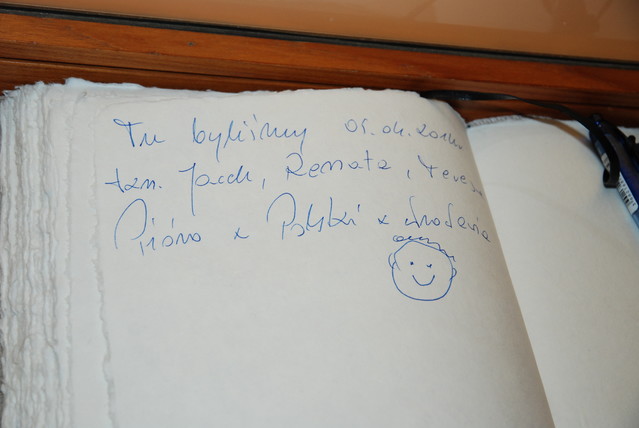 Tu byliśmy 05.04.2010r.
tzn. Jacek, Renata, Teresa
Pióro z Polski z